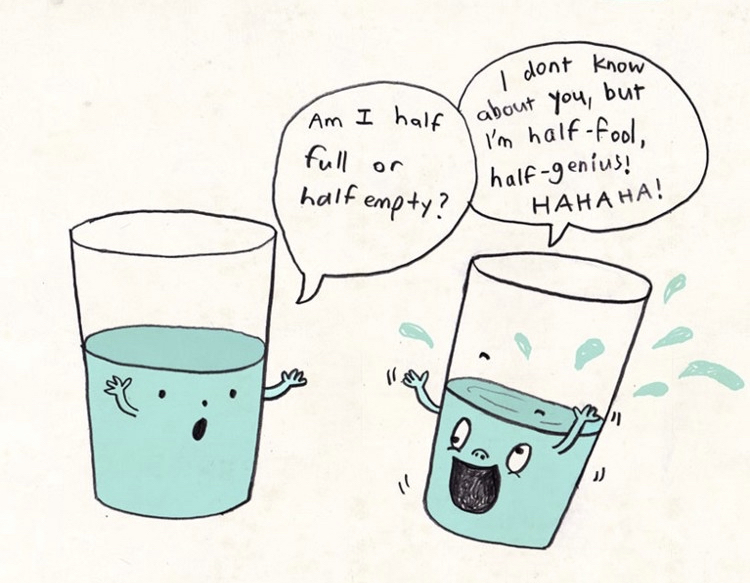 Am I half
full or
half empty?
I dont know
about you, but
I'm half-fool,
half-genius!
HAHAHA!